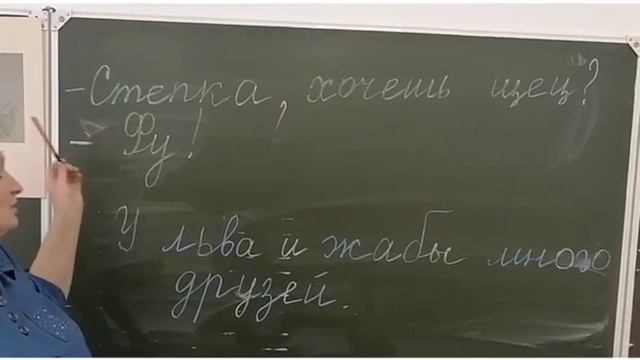 - Степка, хочешь щец?
- Фу!
У льва и жабы много
друзей.